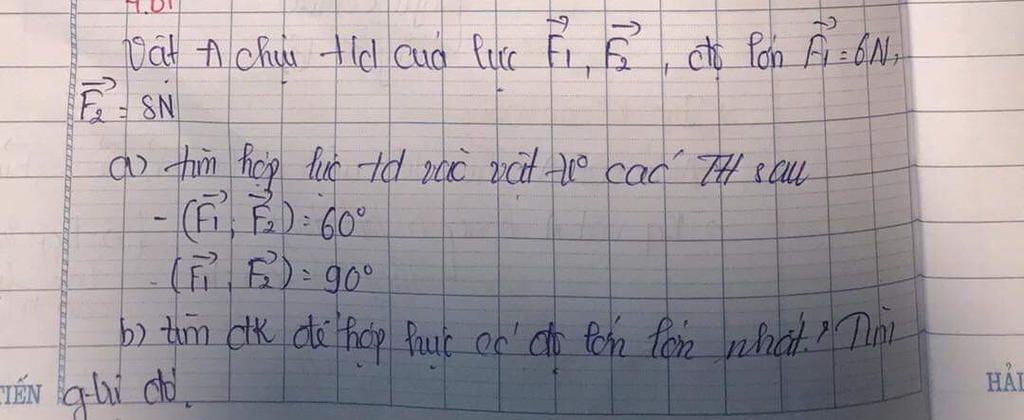 4.01
Vật A chịu td của lực F₁, F₂, độ lớn F₁ = 6N,
F₂ = 8N
a) tìm hợp lực td vào vật tr° các TH sau
- (F₁, F₂) = 60°
- (F₁, F₂) = 90°
b) tìm đk để hợp lực có độ lớn lớn nhất? Tìm
g-trị đó.
TIẾN
HẢI